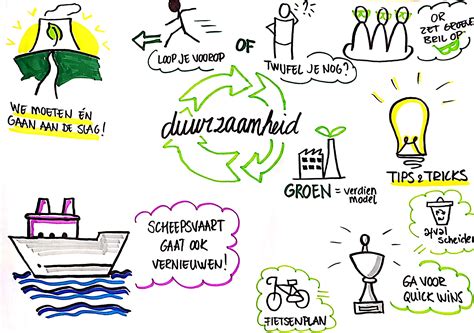 LOOP JE VOOROP
OF
TWIJFEL JE NOG?
OF
ZET GROENE
BRIL OP
WE MOETEN ÉN
GAAN AAN DE SLAG!
duurzaamheid
GROEN = verdien
model
TIPS & TRICKS
afval
scheiden
SCHEEPSVAART
GAAT OOK
VERNIEUWEN!
GA VOOR
QUICK WINS
FIETSENPLAN